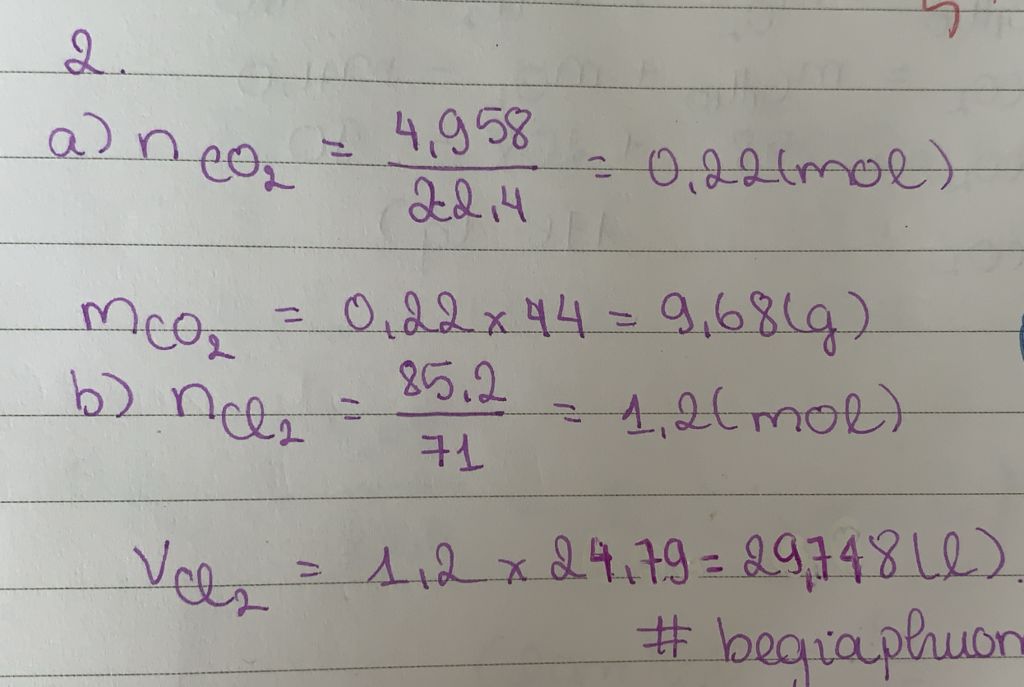 2.
a) nCO₂ = 4,958/22,4 = 0,22(mol)
mCO₂ = 0,22 x 44 = 9,68(g)
b) nCl₂ = 85,2/71 = 1,2(mol)
VCl₂ = 1,2 x 24,79 = 29,748(l).
# begiaphuon